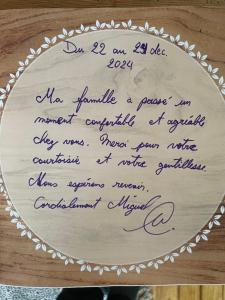 Du 22 au 29 déc.
2024
Ma famille a passé un
moment confortable et agréable
chez vous. Merci pour votre
courtoisie et votre gentillesse.
Nous espérons revenir.
Cordialement Miguel